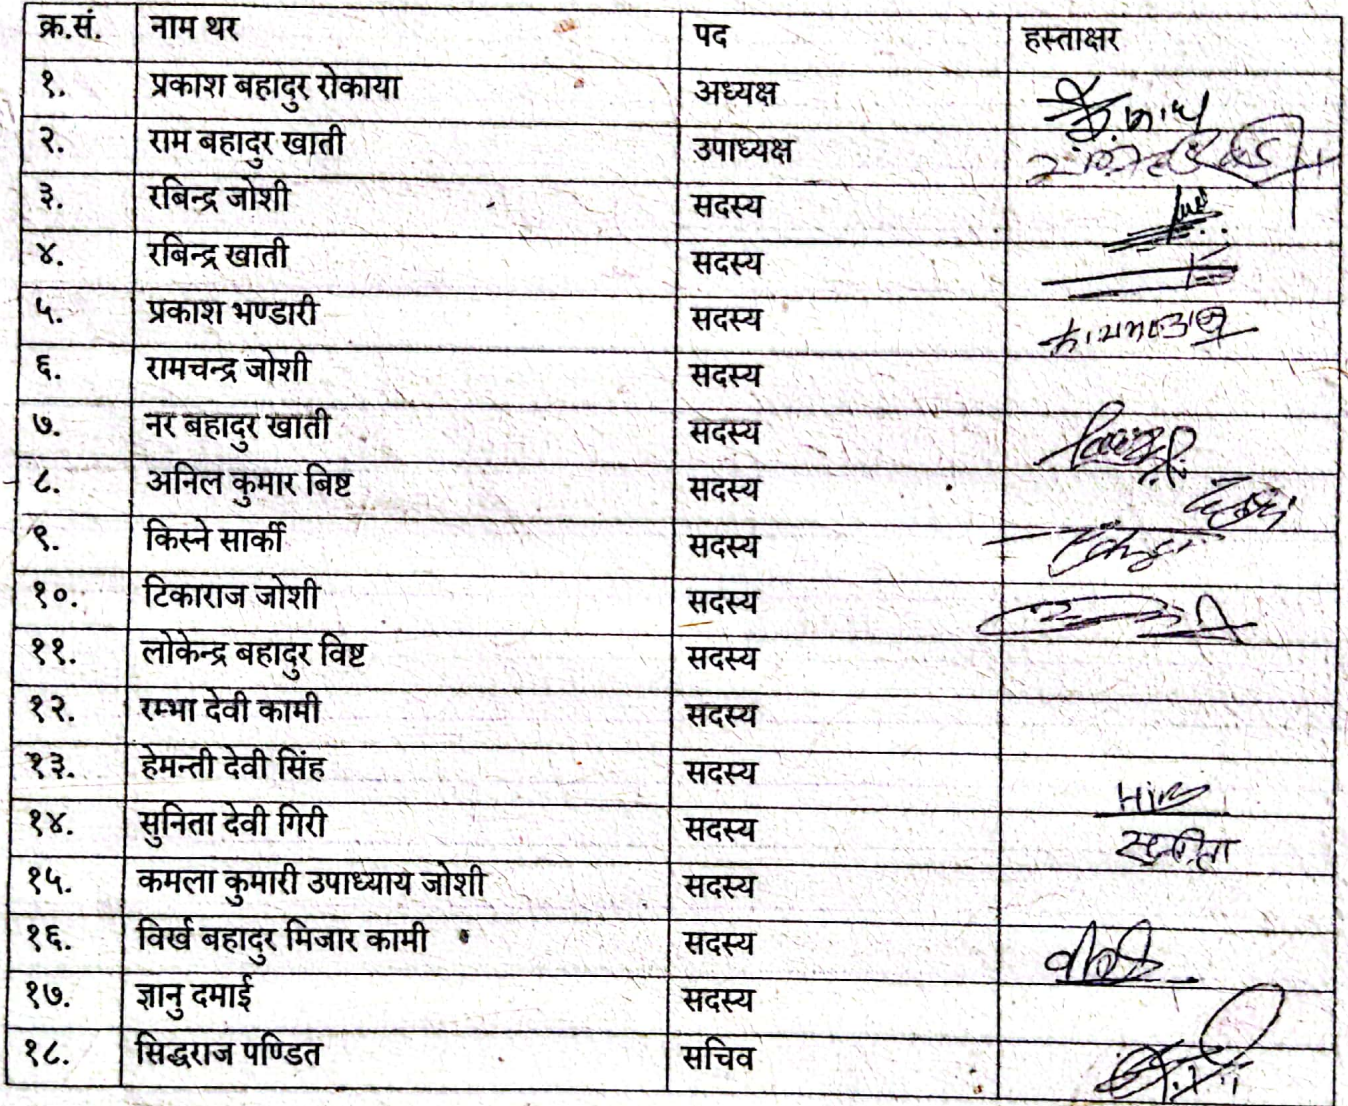 क्र.सं. नाम थर पद हस्ताक्षर
१. प्रकाश बहादुर रोकाया अध्यक्ष
२. राम बहादुर खाती उपाध्यक्ष
३. रबिन्द्र जोशी सदस्य
४. रबिन्द्र खाती सदस्य
५. प्रकाश भण्डारी सदस्य
६. रामचन्द्र जोशी सदस्य
७. नर बहादुर खाती सदस्य
८. अनिल कुमार बिष्ट सदस्य
९. किस्ने सार्की सदस्य
१०. टिकाराज जोशी सदस्य
११. लोकेन्द्र बहादुर विष्ट सदस्य
१२. रम्भा देवी कामी सदस्य
१३. हेमन्ती देवी सिंह सदस्य
१४. सुनिता देवी गिरी सदस्य
१५. कमला कुमारी उपाध्याय जोशी सदस्य
१६. विर्ख बहादुर मिजार कामी सदस्य
१७. ज्ञानु दमाई सदस्य
१८. सिद्धराज पण्डित सचिव